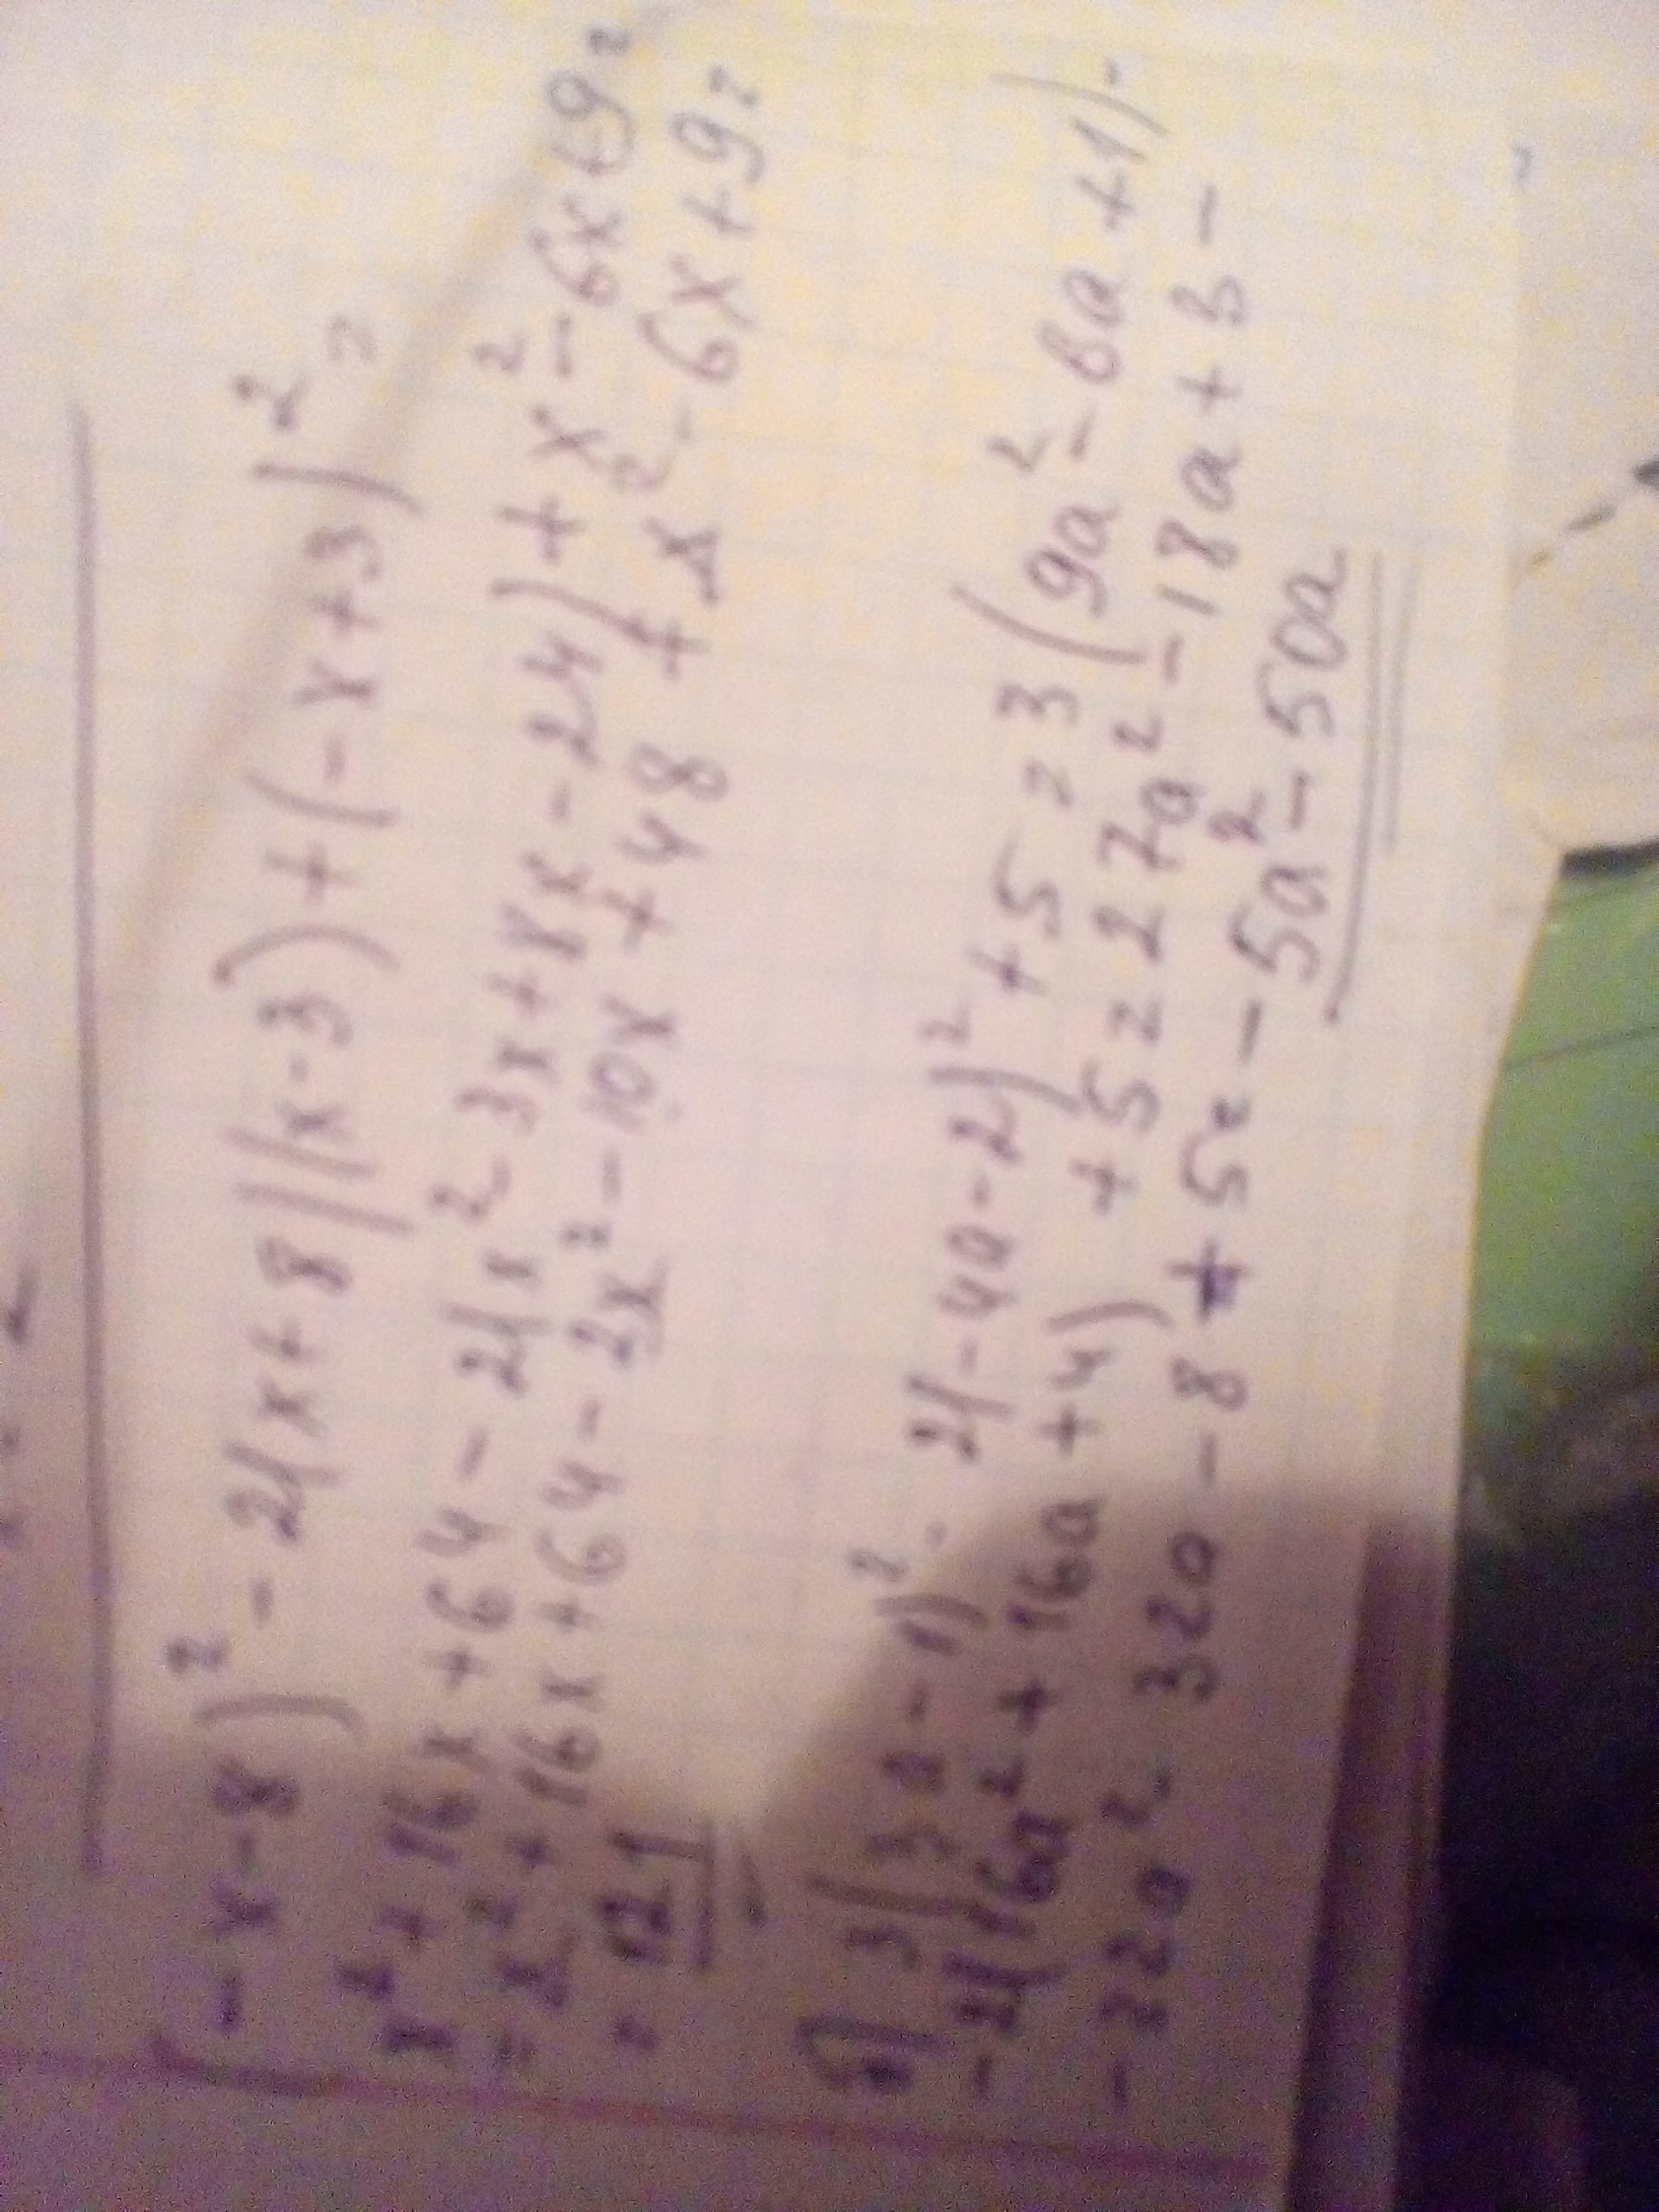 (-x-8)² - 2(x+8)(x-3)+(-x+3)² =
x² + 16x + 64 - 2(x² - 3x + 8x - 24) + x² - 6x + 9 =
= x² + 16x + 64 - 2x² - 10x + 48 + x² - 6x + 9 =
= 121
3(3a-1)² - 2(-4a-2)² + 5 = 3(9a² - 6a + 1) -
- 2(16a² + 16a + 4) + 5 = 27a² - 18a + 3 -
- 32a² - 32a - 8 + 5 = - 5a² - 50a